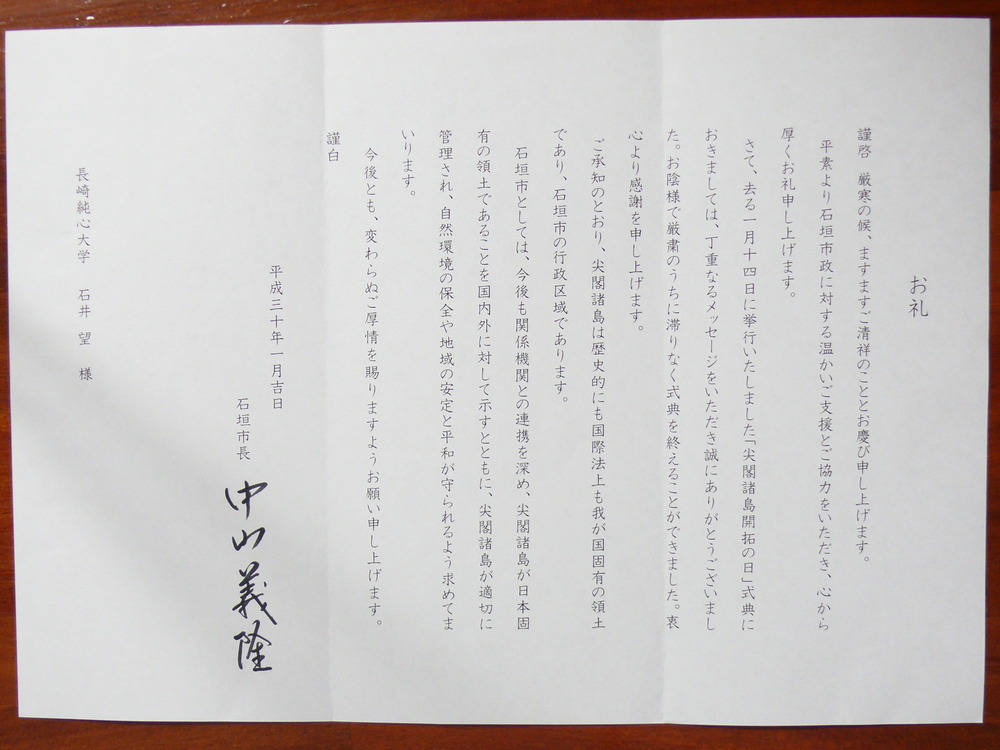 お礼
謹啓　厳寒の候、ますますご清祥のこととお慶び申し上げます。
平素より石垣市政に対する温かいご支援とご協力をいただき、心から
厚くお礼申し上げます。
さて、去る一月十四日に挙行いたしました「尖閣諸島開拓の日」式典に
おきましては、丁重なるメッセージをいただき誠にありがとうございまし
た。お陰様で厳粛のうちに滞りなく式典を終えることができました。衷
心より感謝を申し上げます。
ご承知のとおり、尖閣諸島は歴史的にも国際法上も我が国固有の領土
であり、石垣市の行政区域であります。
石垣市としては、今後も関係機関との連携を深め、尖閣諸島が日本固
有の領土であることを国内外に対して示すとともに、尖閣諸島が適切に
管理され、自然環境の保全や地域の安定と平和が守られるよう求めてま
いります。
今後とも、変わらぬご厚情を賜りますようお願い申し上げます。
謹白
平成三十年一月吉日
石垣市長　中山義隆
長崎純心大学　石井　望　様